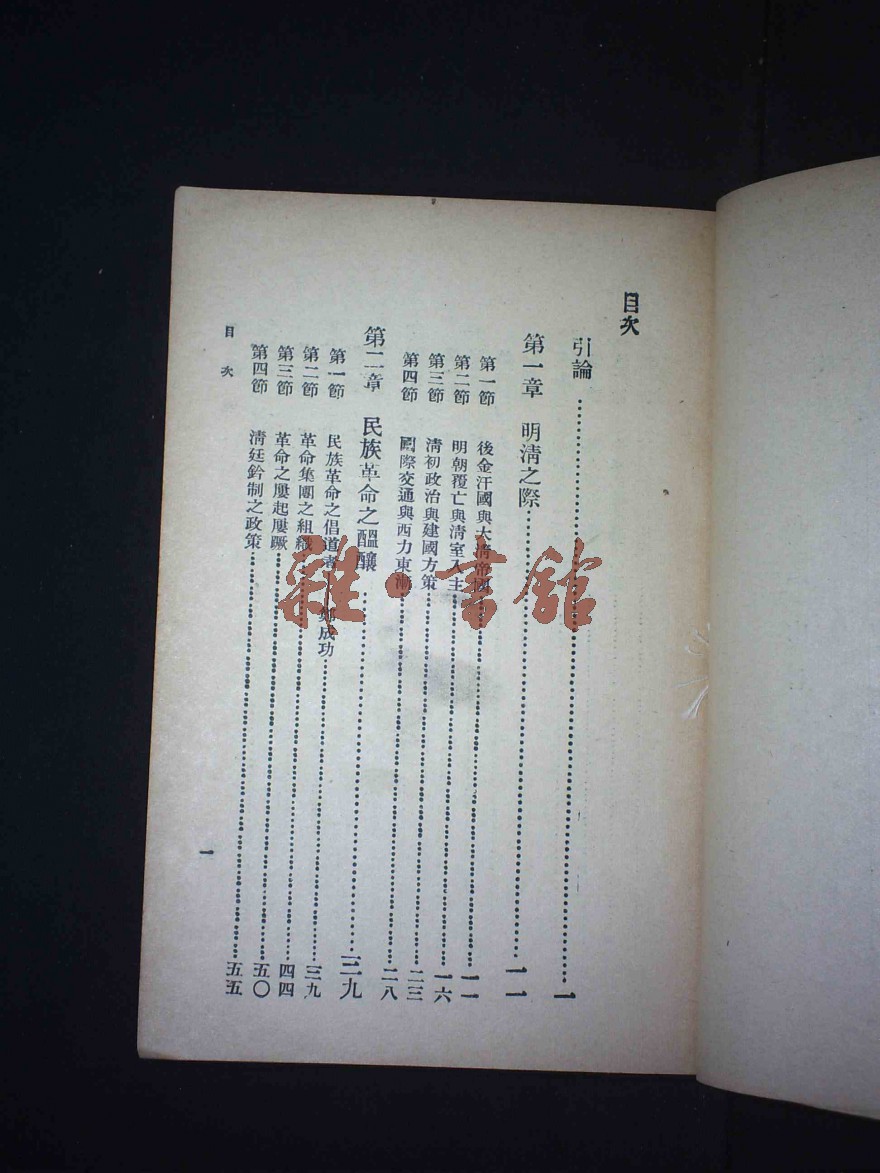 目次
引論……一
第一章 明清之際……一一
第一節 後金汗國與大清帝國……一一
第二節 明朝覆亡與清室入主……一六
第三節 清初政治與建國方策……二三
第四節 國際交通與西力東漸……二八
第二章 民族革命之醞釀……三九
第一節 民族革命之倡道者——鄭成功……三九
第二節 革命集團之組織……四四
第三節 革命之屢起屢蹶……五〇
第四節 清廷鈐制之政策……五五
目次
一
雜·書館